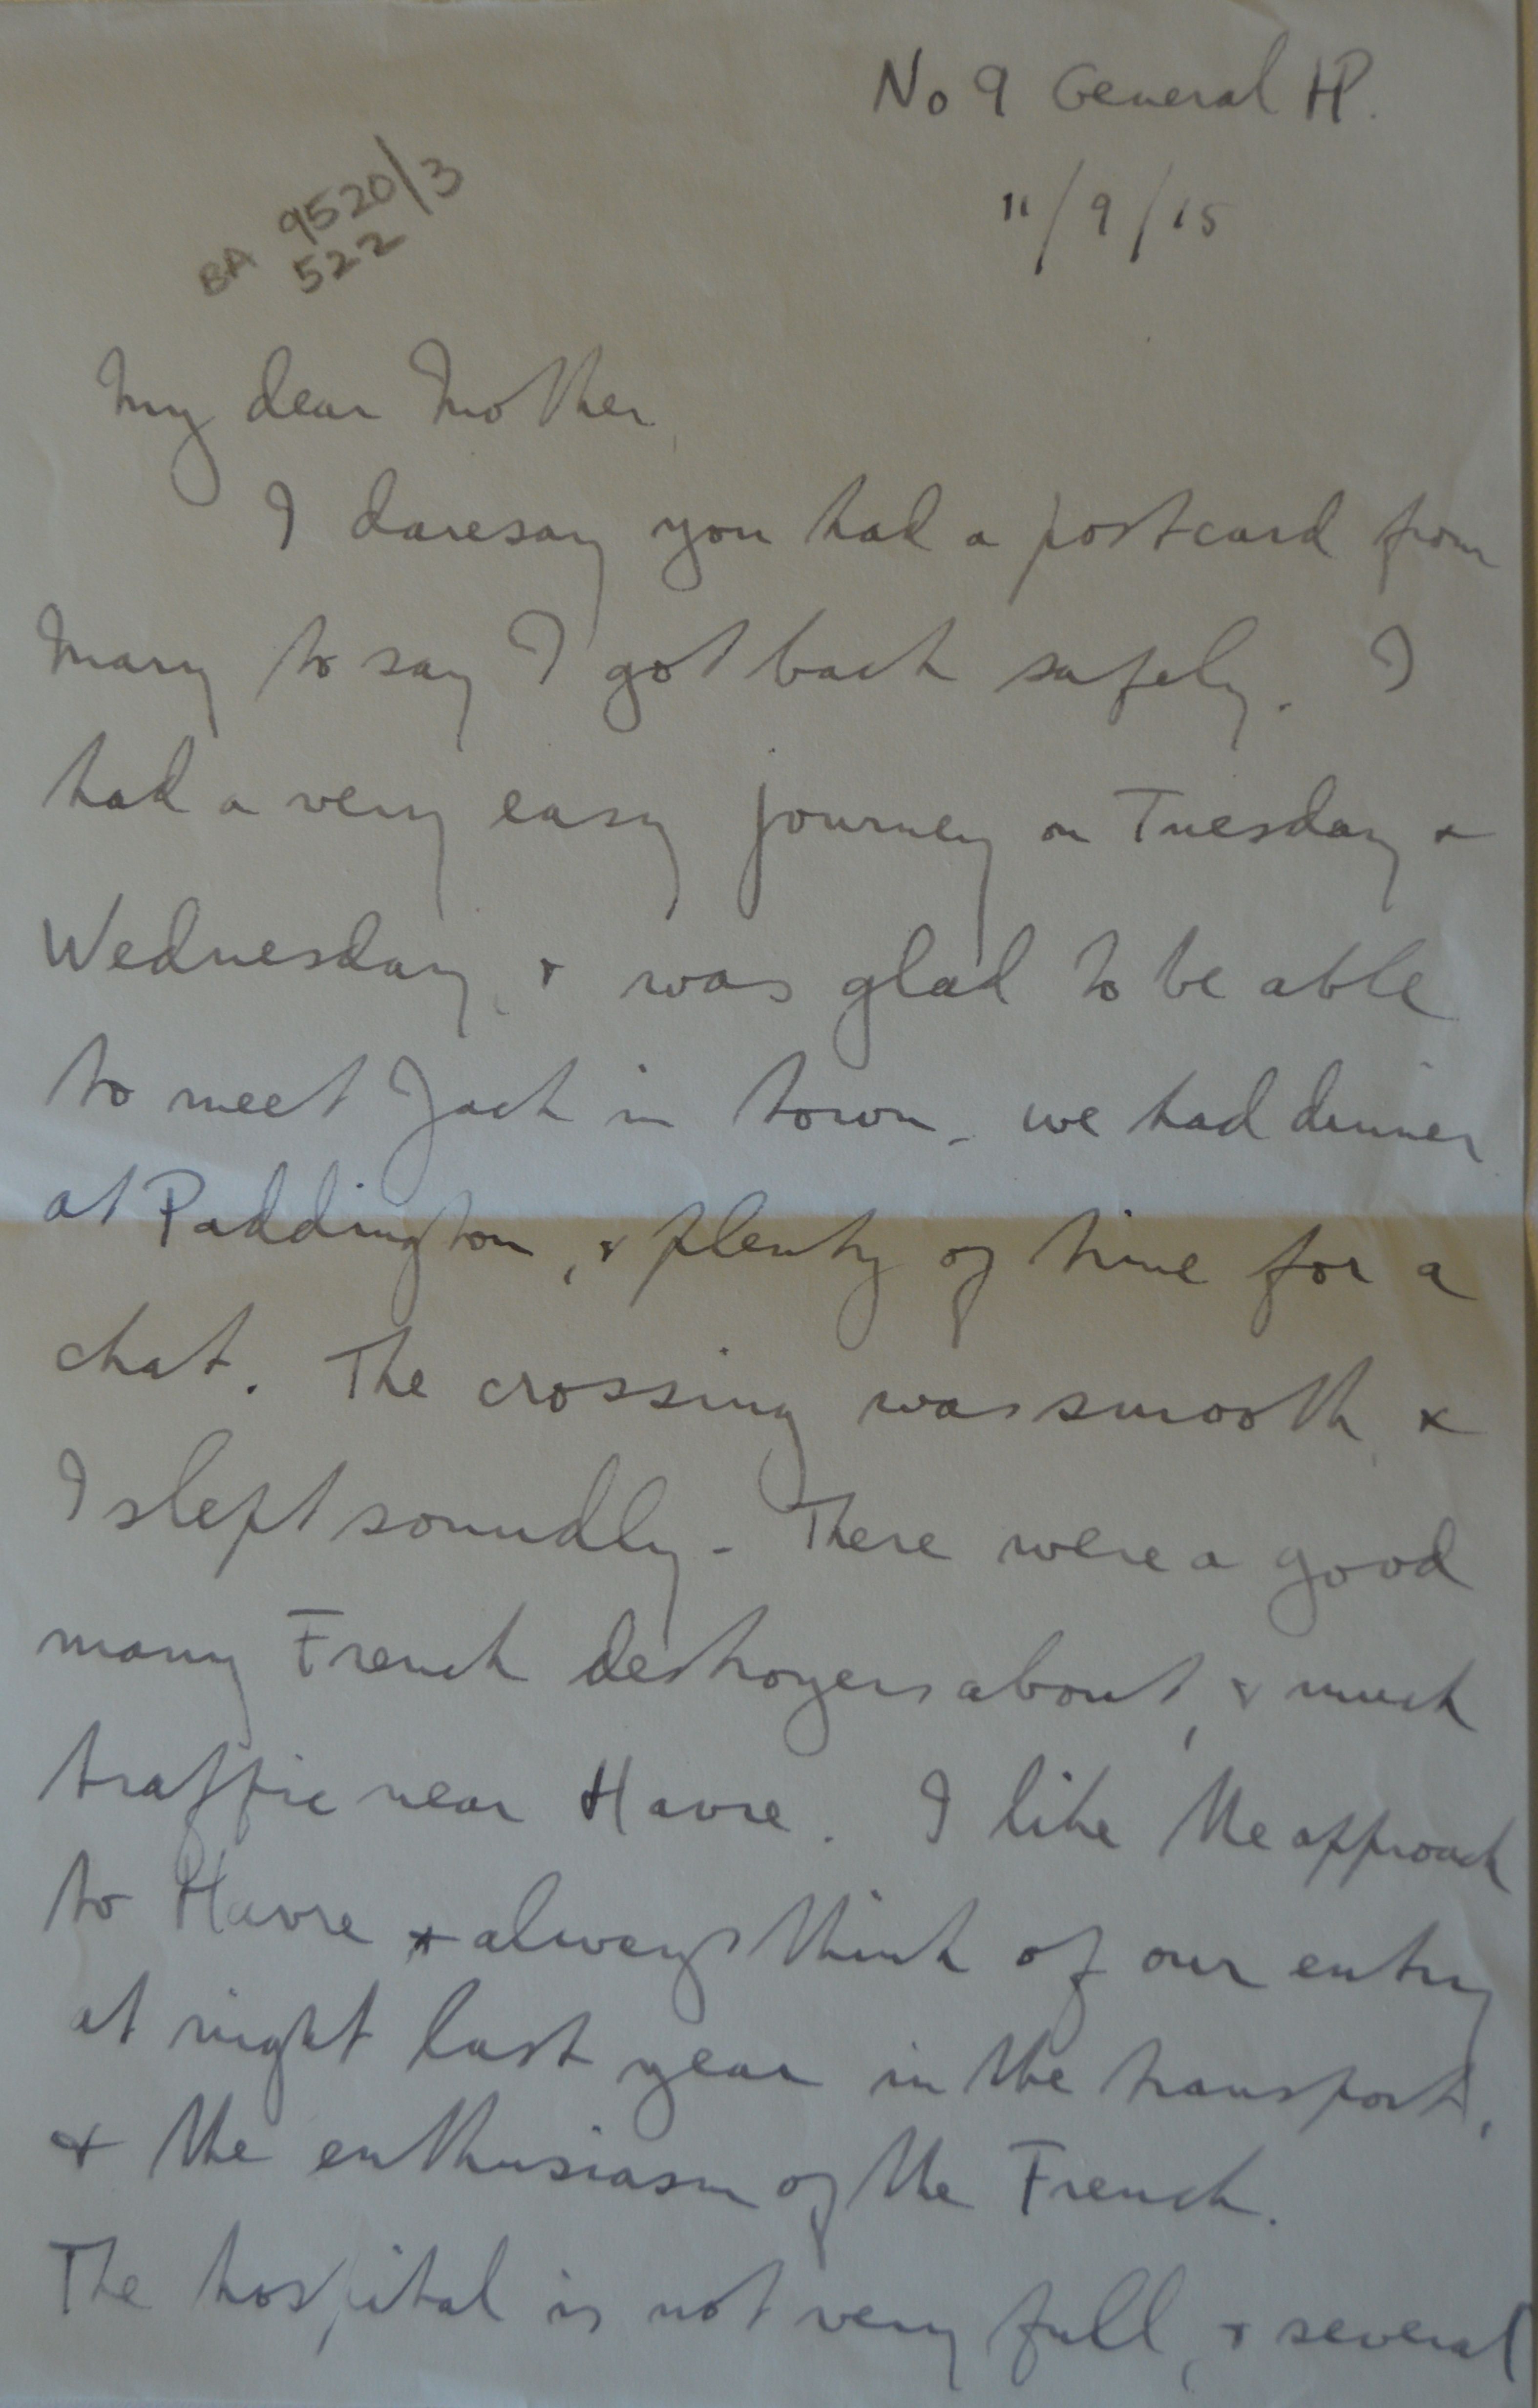 No 9 General HP.
11/9/15
BA 9520/3
522
My dear Mother,
I daresay you had a postcard from
Mary to say I got back safely. I
had a very easy journey on Tuesday &
Wednesday, & was glad to be able
to meet Jack in town. we had dinner
at Paddington, & plenty of time for a
chat. The crossing was smooth, &
I slept soundly. There were a good
many French destroyers about, & much
traffic near Havre. I like the approach
to Havre & always think of our entry
at night last year in the transport,
& the enthusiasm of the French.
The hospital is not very full, & several